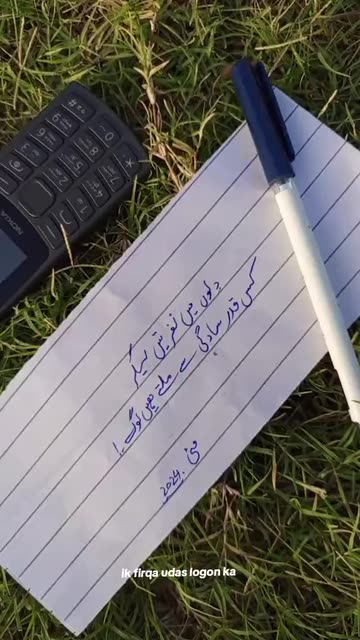 دلوں میں نفرتیں لیکر
کس قدر سادگی سے ملتے ہیں لوگ !
مئی 2024
ik firqa udas logon ka
NOKIA